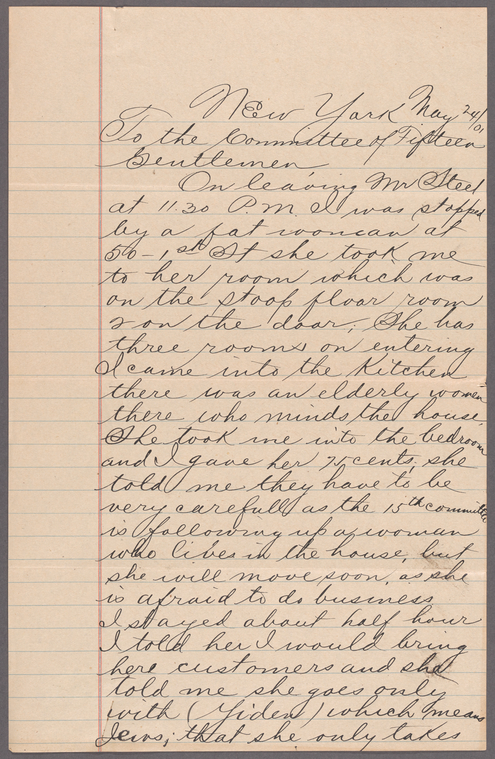 New York May 24/01
To the Committee of Fifteen
Gentlemen
On leaving Mr Steel
at 11.30 P.M. I was stopped
by a fat woman at
50-1st St she took me
to her room which was
on the stoop floar room
2 on the doar. She has
three rooms on entering
I came into the Kitchen
there was an elderly women
there who minds the house.
She took me into the bedroom
and I gave her 75 cents, she
told me they have to be
very carefull as the 15th committee
is following up a woman
who lives in the house, but
she will move soon, as she
is afraid to do business
I stayed about half hour
I told her I would bring
here customers and she
told me she goes only
with (Yiden) which means
Jews; that she only takes